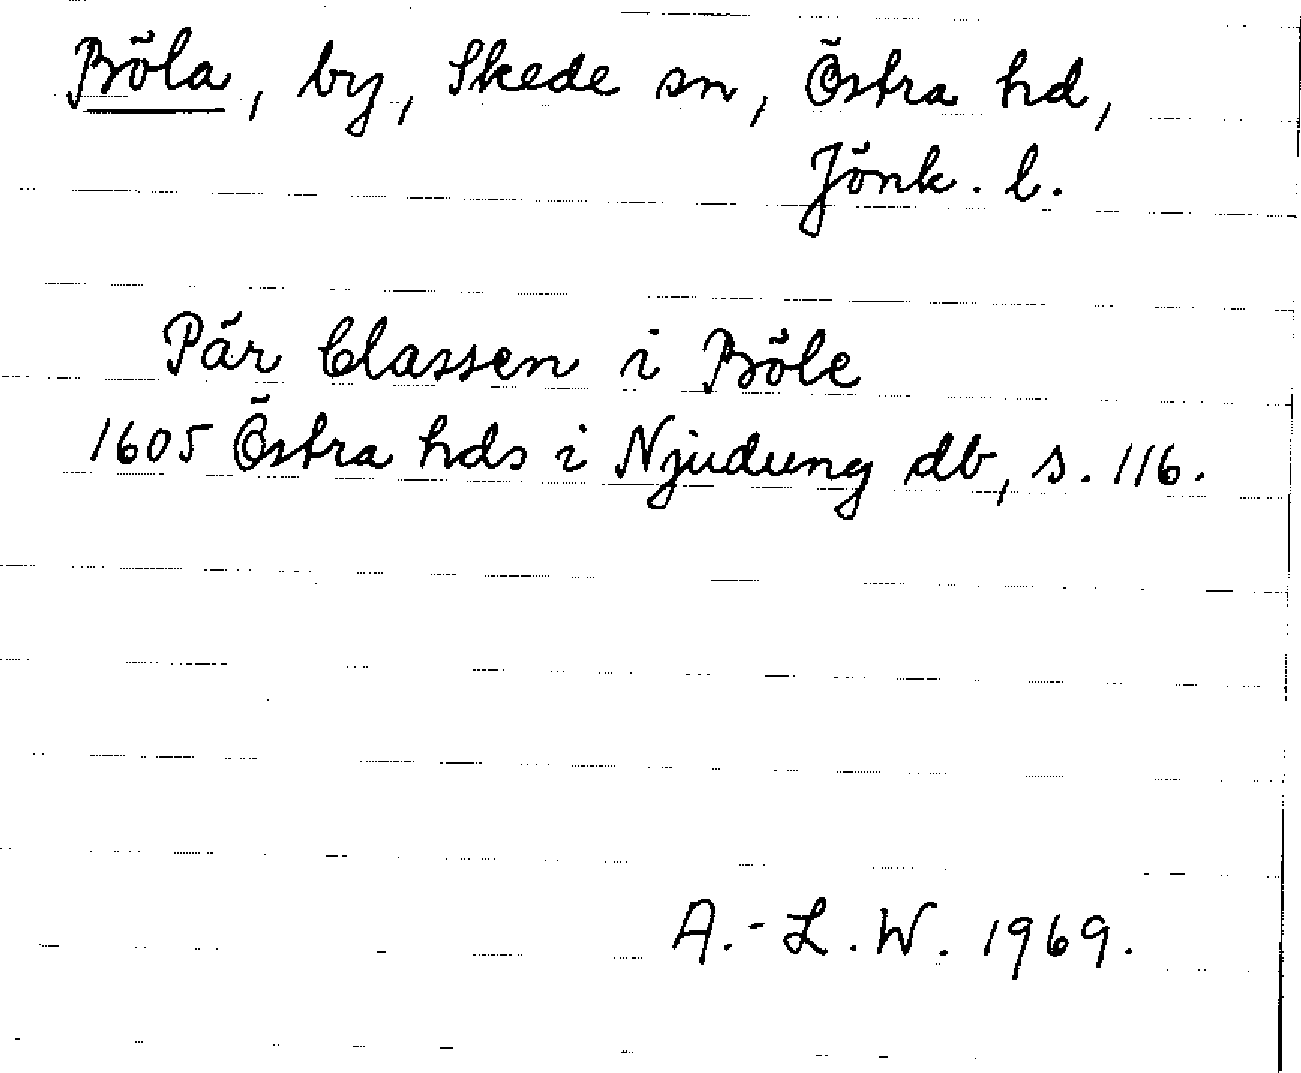 Böla, by, Skede sn, Östra hd,
Jönk. l.
Pär Classen i Böle
1605 Östra hds i Njudung db, s. 116.
A.-L.W. 1969.